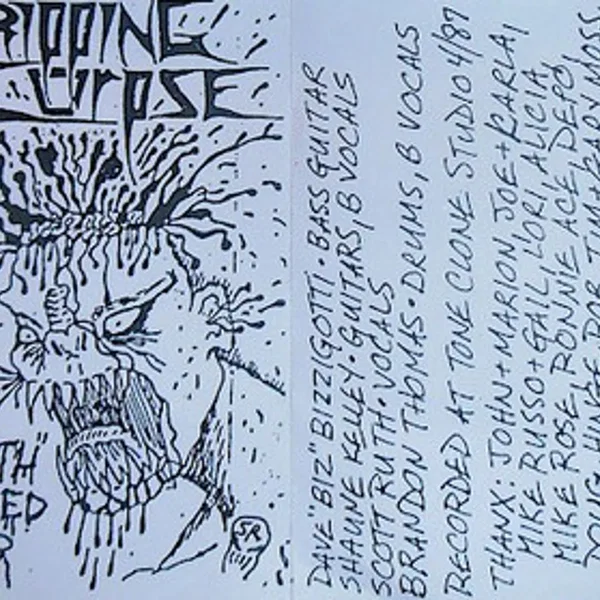 RIPPING
CORPSE
TH"
ED
SR
DAVE "BIZ" BIZZIGOTTI • BASS GUITAR
SHAUNE KELLEY • GUITARS, B VOCALS
SCOTT RUTH • VOCALS
BRANDON THOMAS • DRUMS, B VOCALS
RECORDED AT TONE CLONE STUDIO 4/87
THANX: JOHN + MARION, JOE + KARLA,
MIKE RUSSO + GAIL, LORI, ALICIA,
MIKE ROSE, RONNIE ACE, DEPO,
DOUG, HINGE, BOB, TIM, KARN MOSS